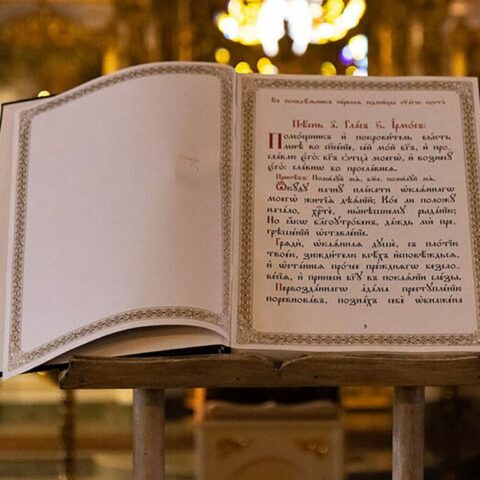 Въ понедѣльникъ пе́рвыя седми́цы ст҃а́гѡ поста̀
Пѣ́снь а҃. Гла́съ ѕ҃. І҆рмо́съ:
Помо́щникъ и҆ покрови́тель бы́сть
мнѣ̀ во сп҃се́нїе, се́й мо́й бг҃ъ, и҆ про-
сла́влю є҆го̀: бг҃ъ ѻ҆тца̀ моегѡ̀, и҆ вознесꙋ̀
є҆го̀: сла́внѡ бо просла́висѧ.
Припѣ́въ: Поми́лꙋй мѧ̀, бж҃е, поми́лꙋй мѧ̀.
Ѿкꙋ́дꙋ начнꙋ̀ пла́кати ѡ҆каѧ́ннагѡ
моегѡ̀ житїѧ̀ дѣѧ́нїй; Ко́е ли положꙋ̀
нача́ло, хрт҃ѐ, ны́нѣшнемꙋ рыда́нїю;
Но ꙗ҆́кѡ благоꙋтро́бенъ, да́ждь мѝ пре-
грѣше́нїй ѡ҆ставле́нїе.
Грѧдѝ, ѡ҆каѧ́ннаѧ дꙋшѐ, съ пло́тїю
твое́ю, зижди́телю всѣ́хъ и҆сповѣ́ждьсѧ,
и҆ ѡ҆ста́нисѧ про́чее пре́жднѧгѡ безсло-
ве́сїѧ, и҆ принесѝ бг҃ꙋ въ покаѧ́нїи сле́зы.
Первозда́ннаго а҆да́ма престꙋпле́нїю
поревнова́въ, позна́хъ себѐ ѡ҆бнаже́на